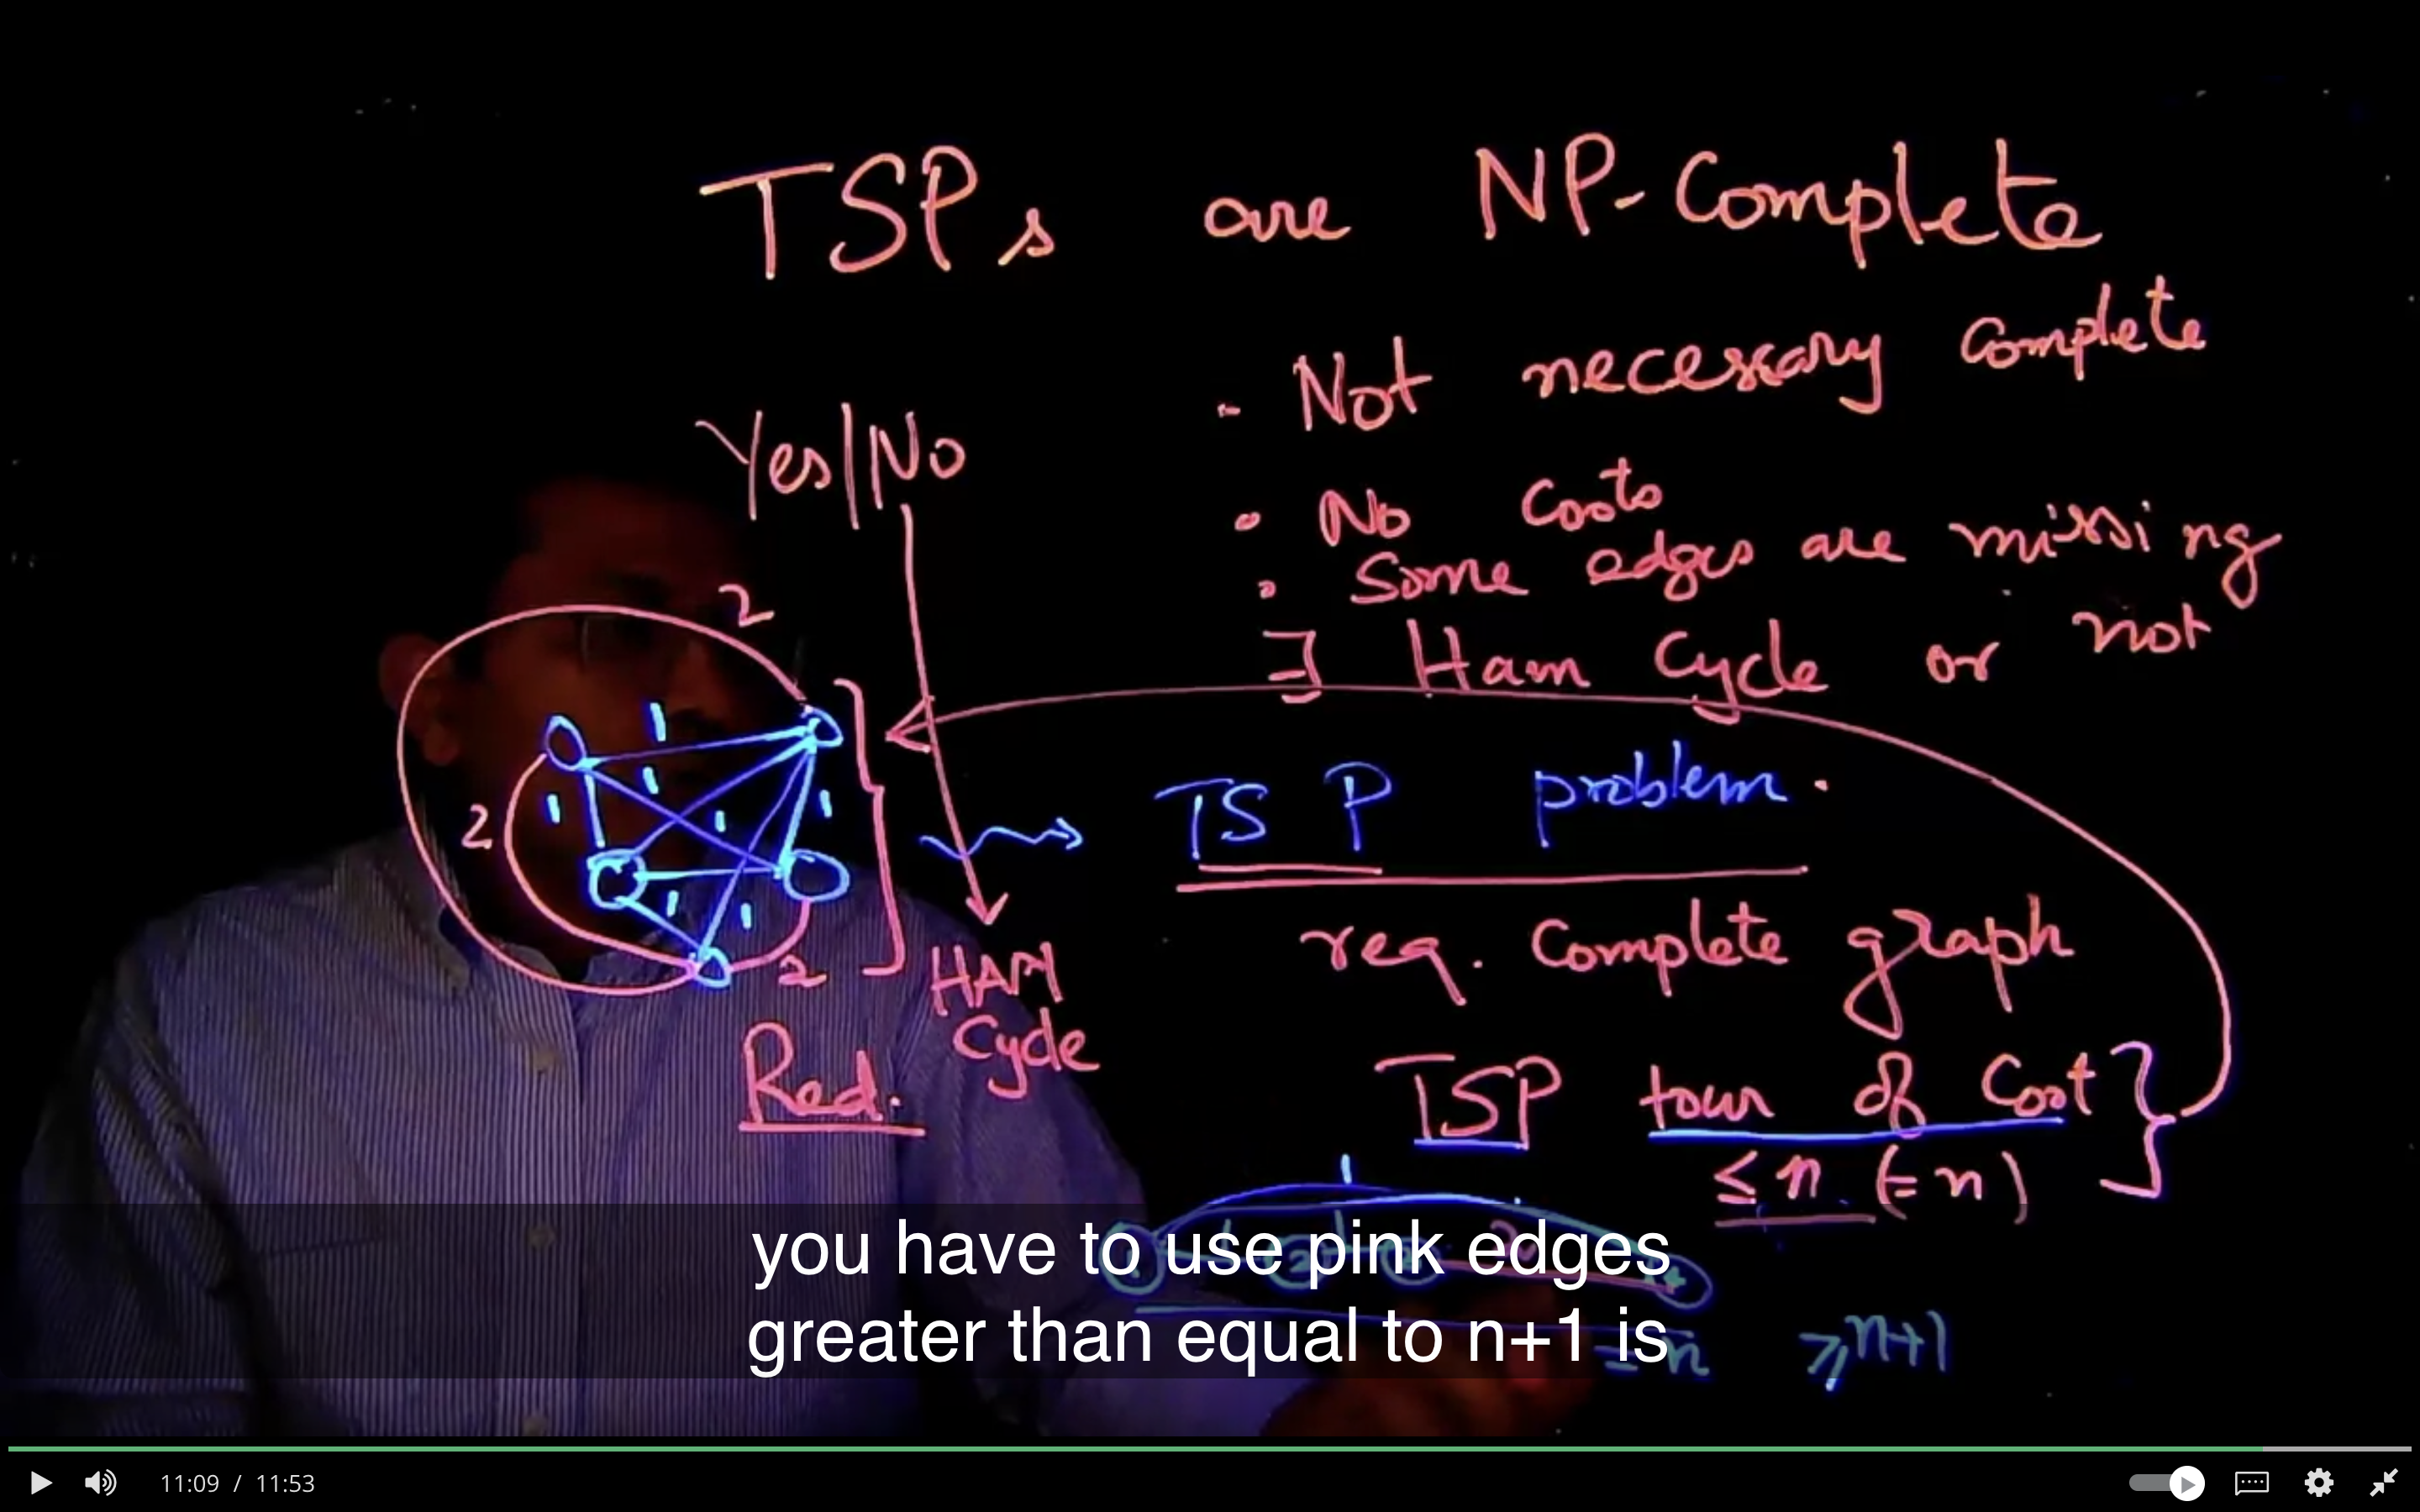 TSPs are NP-Complete
- Not necessary complete
Yes|No
• No Costs
• Some edges are missing
∃ Ham Cycle or not
2
1
1
1
2
1
1
1
1
2
TSP problem.
req. Complete graph
HAM
Cycle
Red.
TSP tour of Cost
≤ n (= n)
1
you have to use pink edges
greater than equal to n+1 is
= n ≥ n+1
11:09 / 11:53